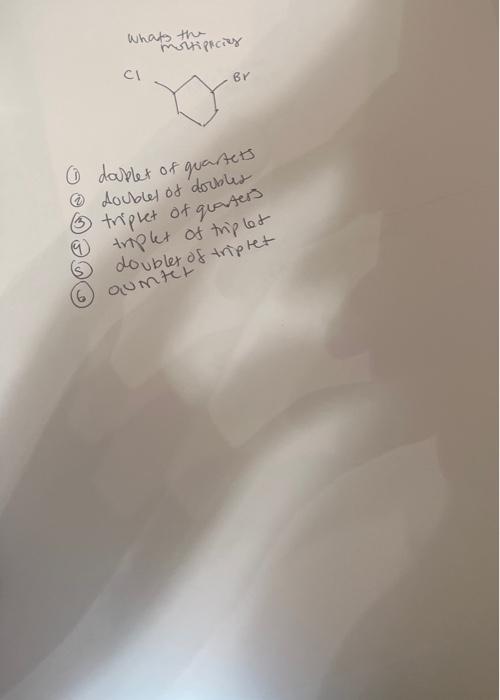 whats the
multiplicity
Cl Br
① doublet of quartets
② doublet of doublet
③ triplet of quartets
④ triplet of triplet
⑤ doublet of triplet
⑥ quintet